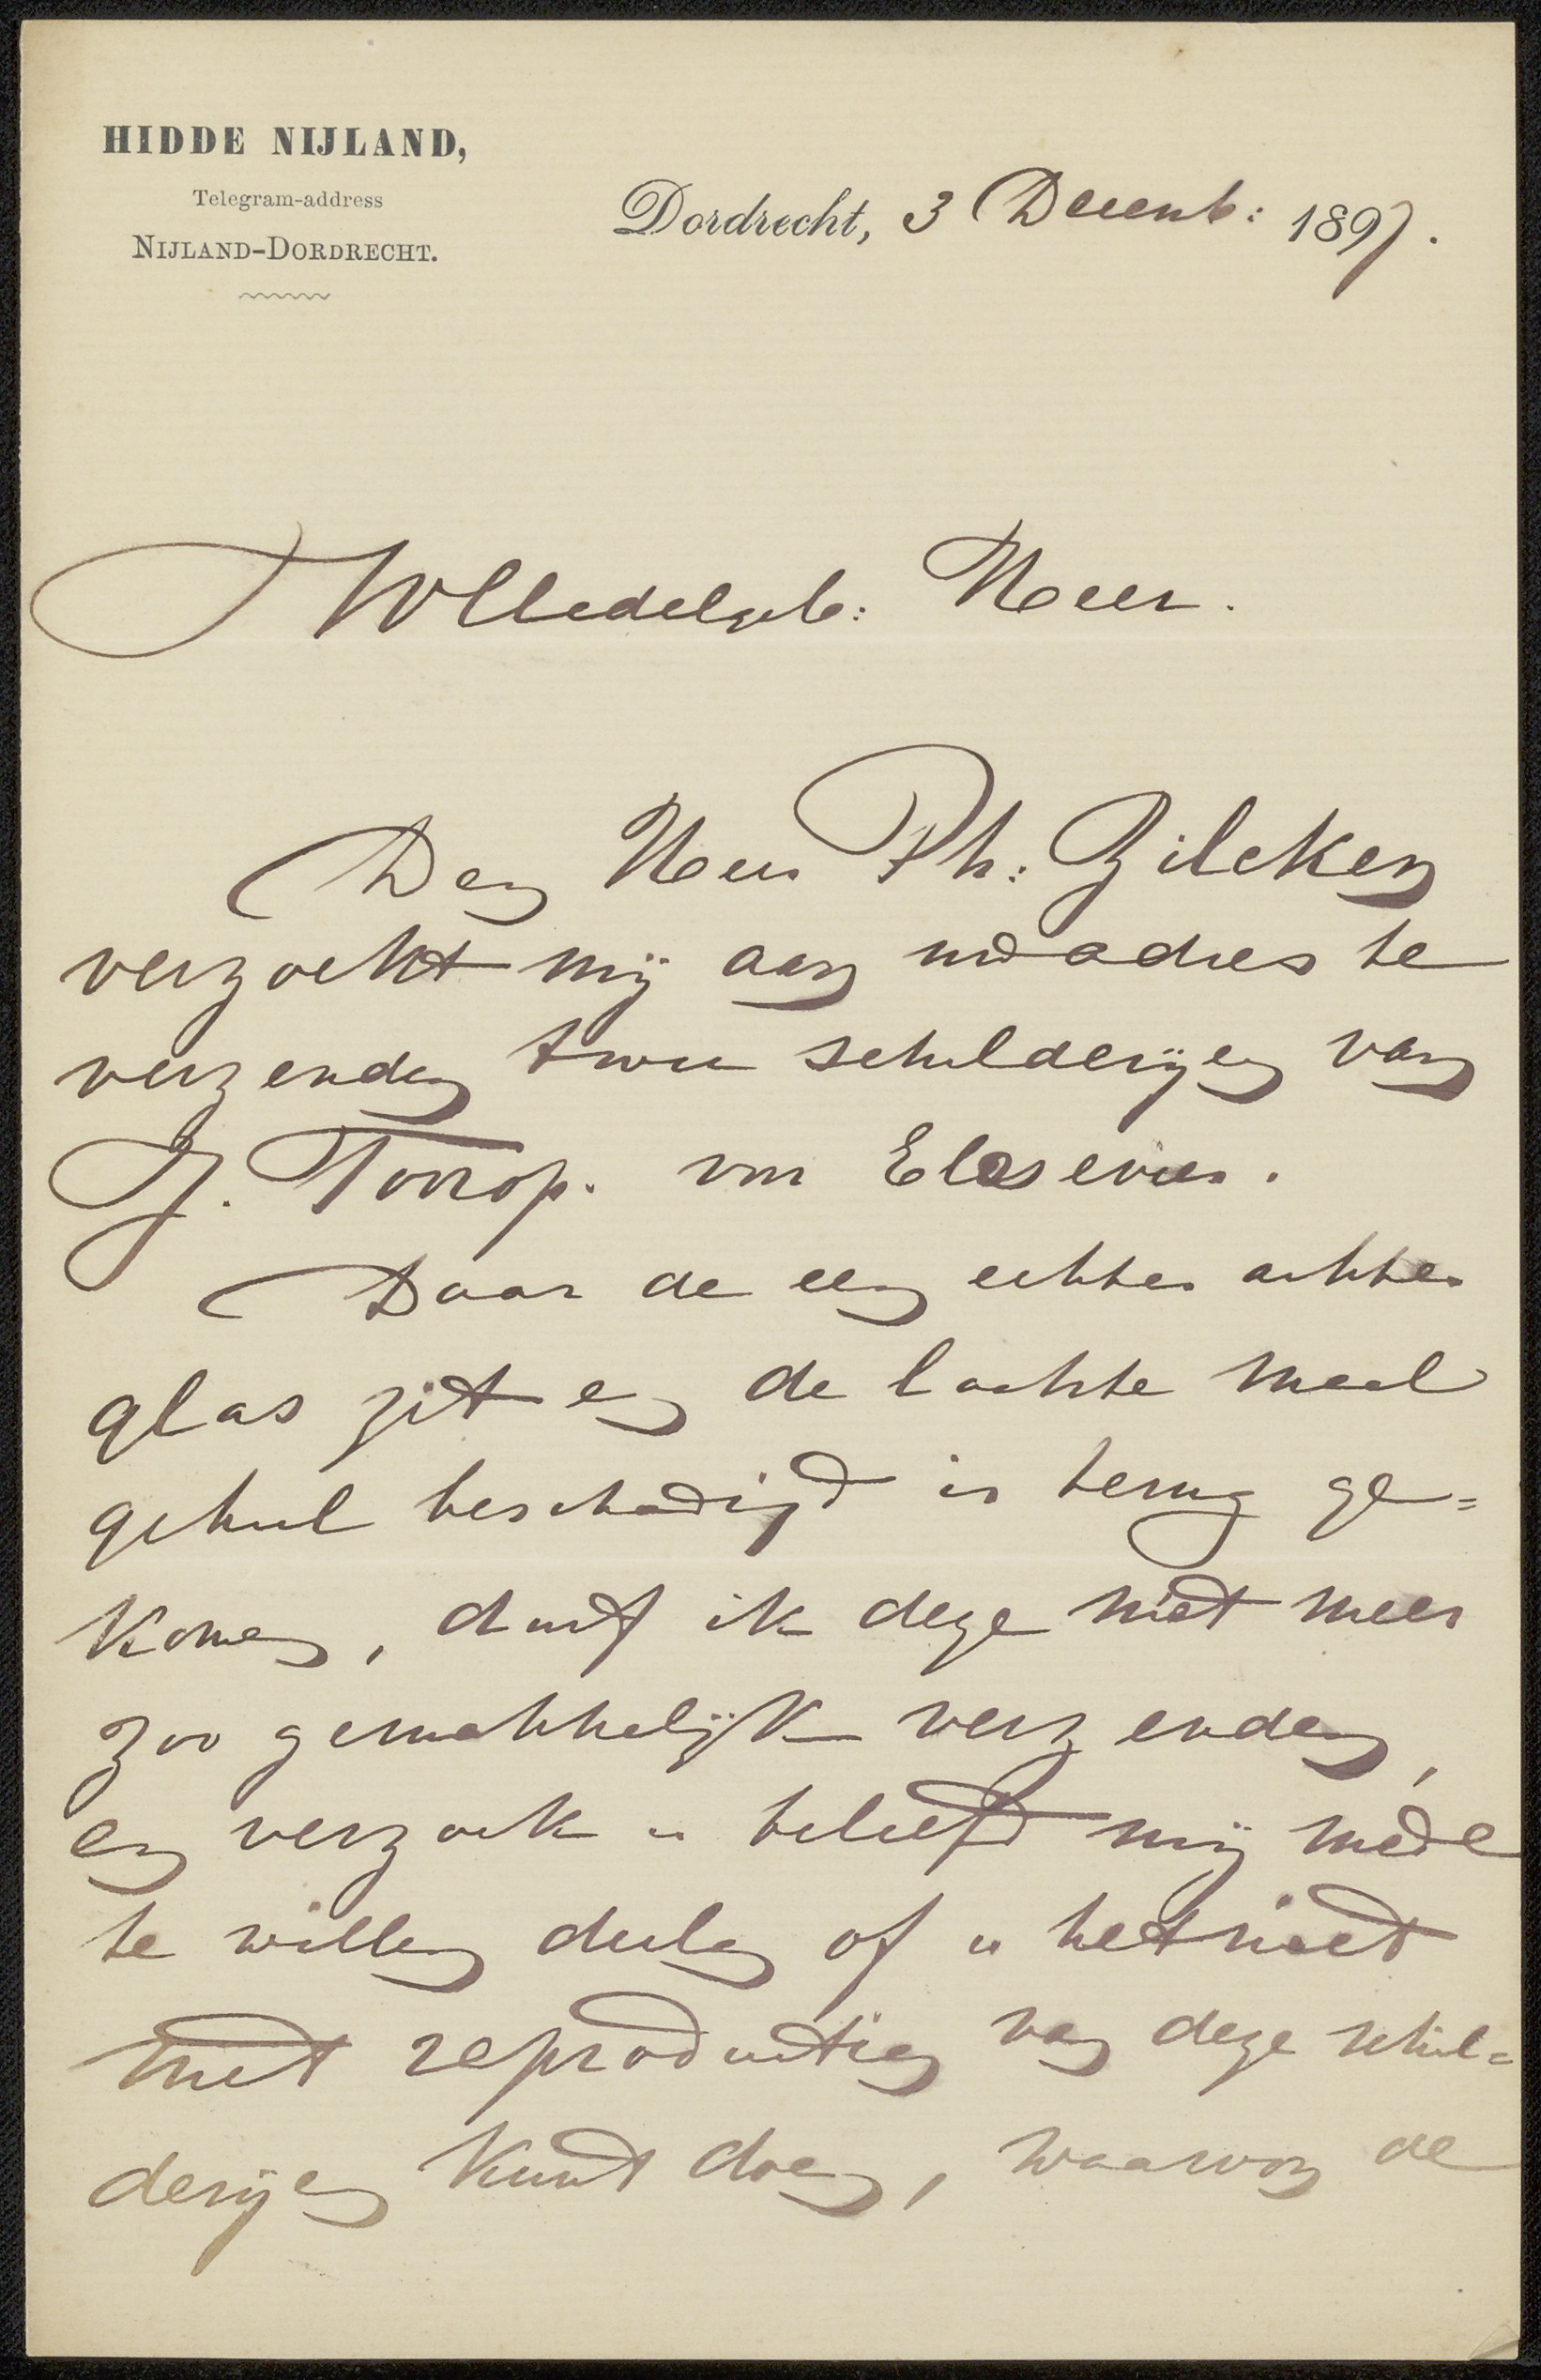 HIDDE NIJLAND,
Telegram-address
NIJLAND-DORDRECHT.
Dordrecht, 3 Decemb: 1897.
WelEdelgeb: Heer.
Den Heer Ph: Zilcken
verzocht mij aan uw adres te
verzenden twee schilderijen van
J. Toorop. voor Elsevier.
Daar de een echter achter
glas zit en de laatste maal
geheel beschadigd is terug ge=
komen, durf ik deze niet meer
zoo gemakkelijk verzenden,
en verzoek u beleefd mij mede
te willen deelen of u het niet
met reproductien van deze schil=
derijen kunt doen, waarvan de